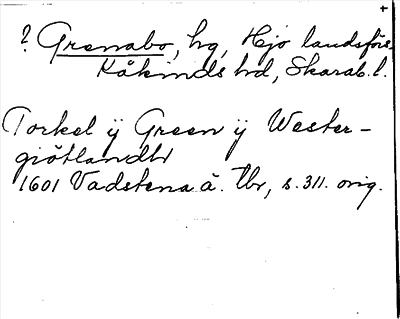 +
? Grenabo, hg, Hjo landsförs.
Kåkinds hd, Skarab. l.
Torkel ÿ Green ÿ Wester-
giötlandh
1601 Vadstena ä. Tbr, s. 311. orig.